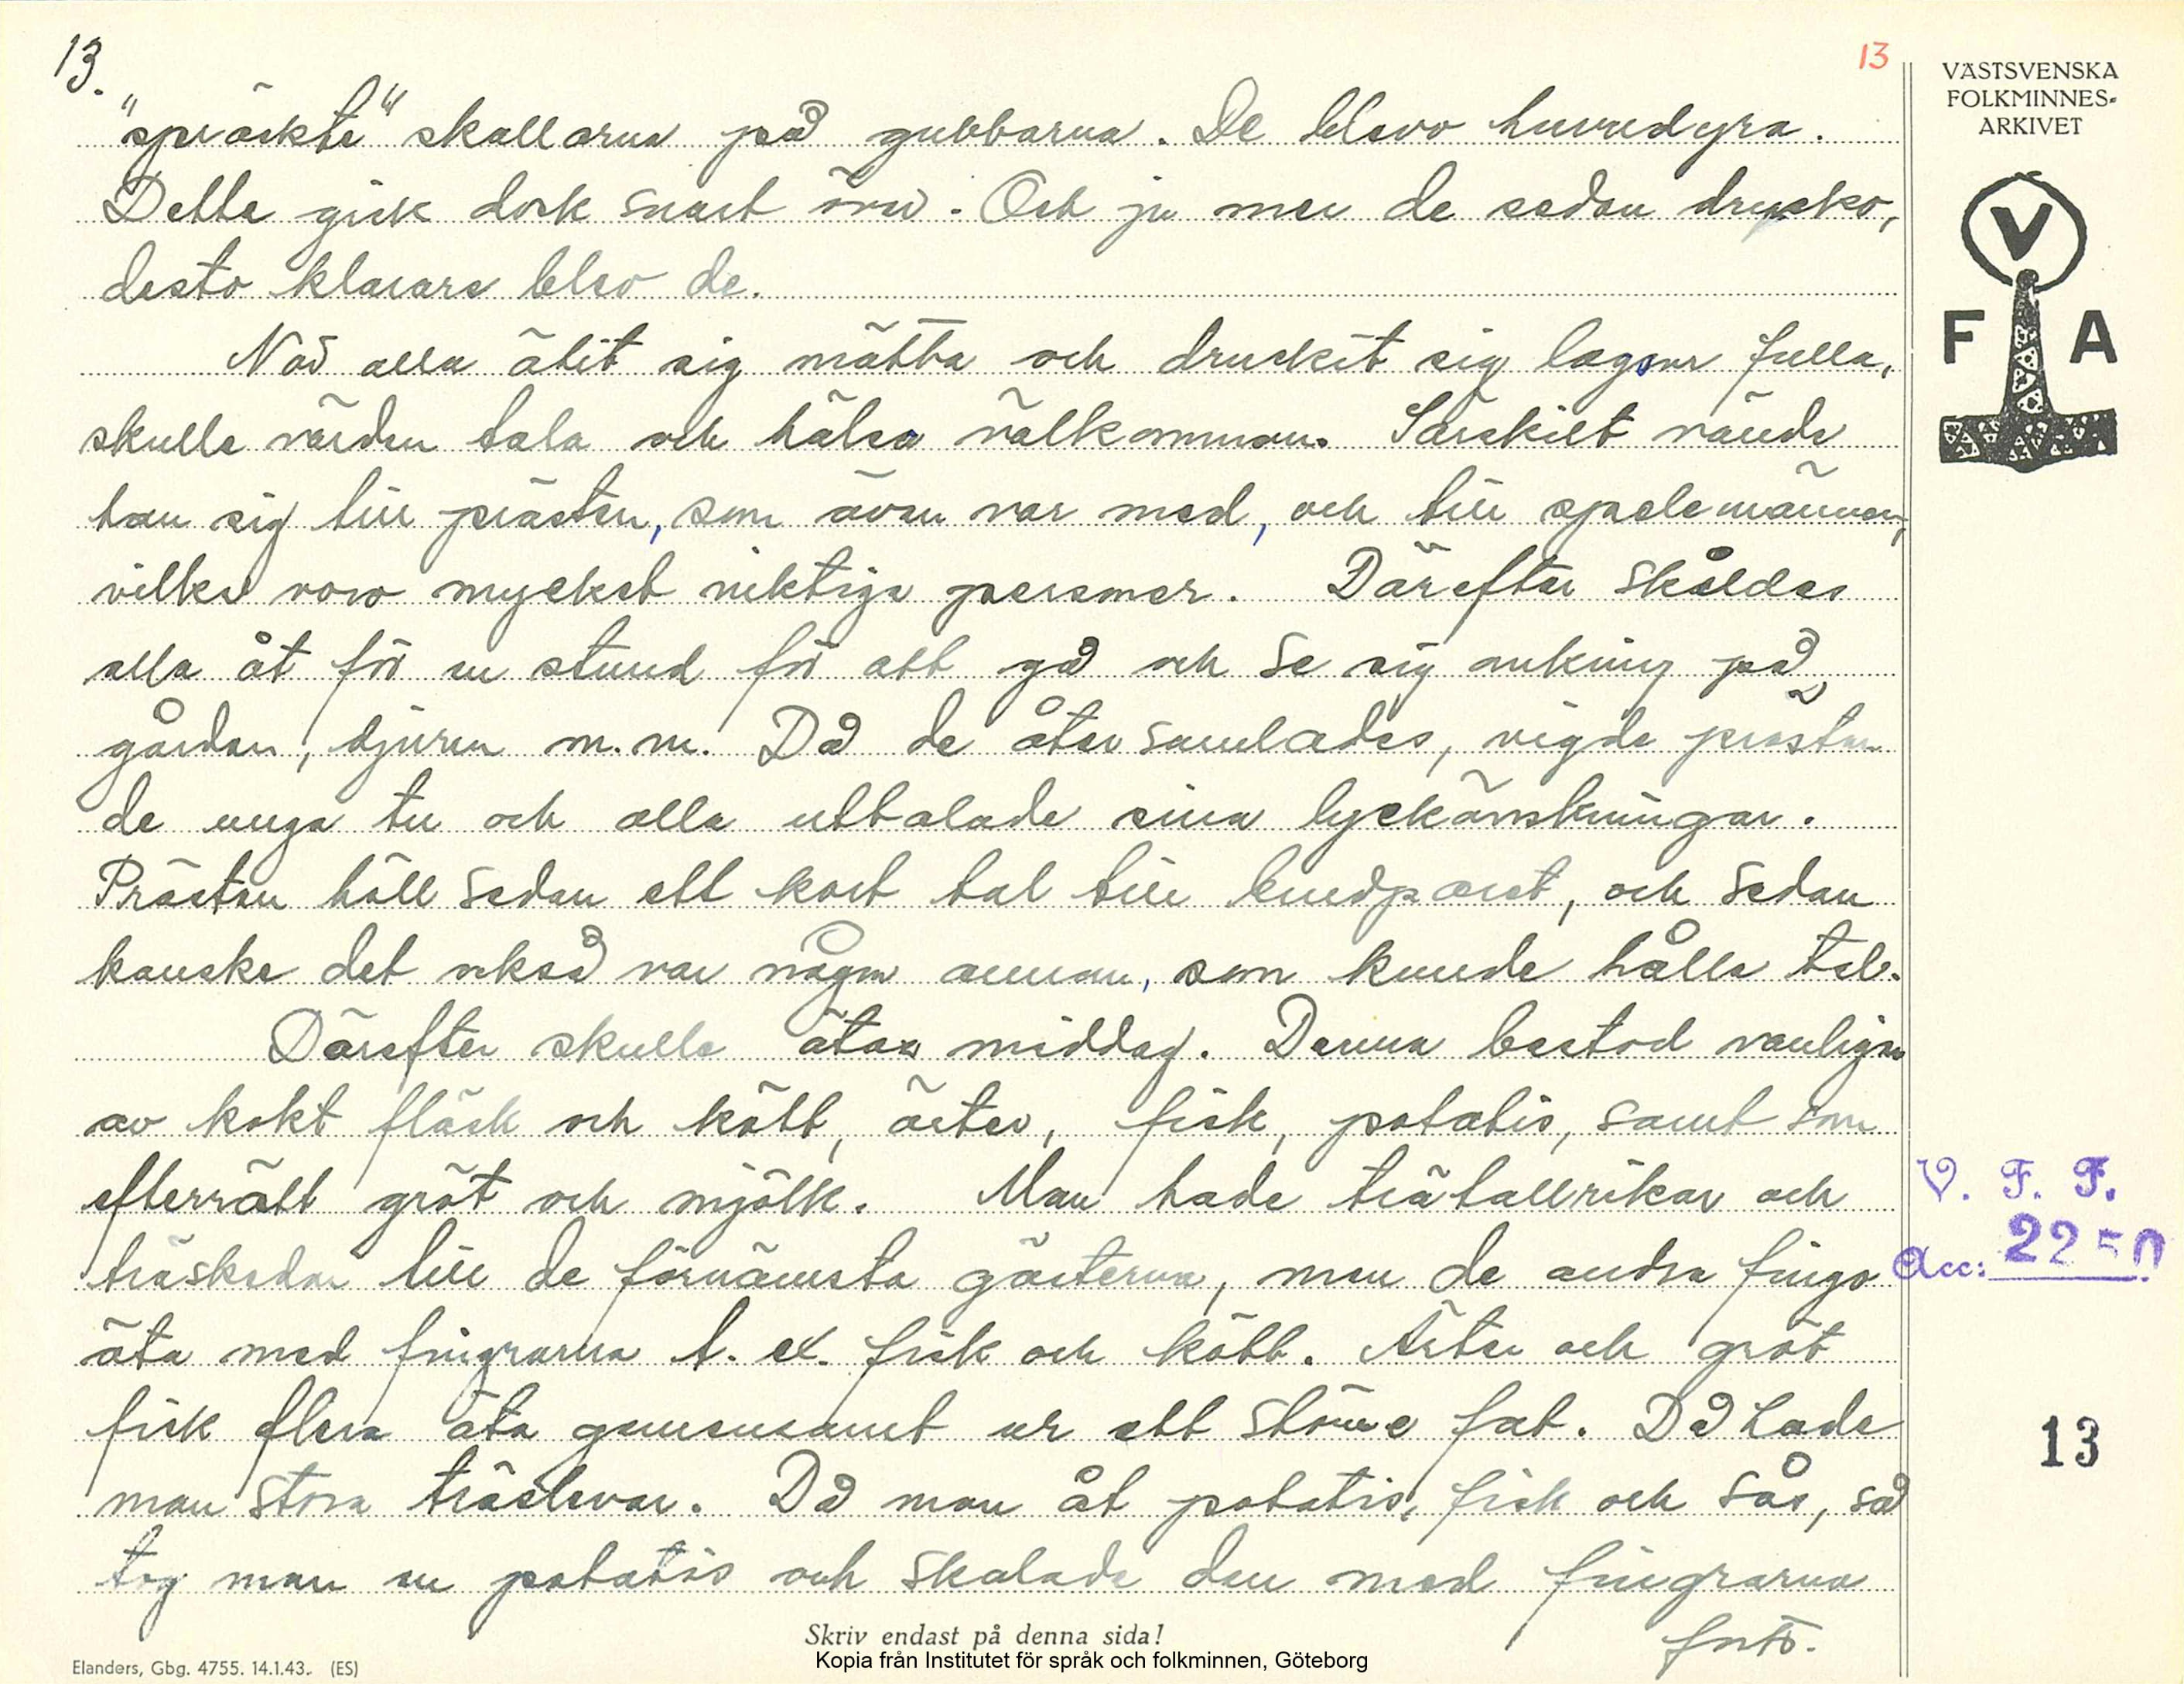 13.
13
VÄSTSVENSKA
FOLKMINNES-
ARKIVET
V
F A
"spräckte" skallarna på gubbarna. De blevo huvudyra.
Detta gick dock snart över. Och ju mer de sedan drucko,
desto klarare blevo de.
När alla ätit sig mätta och druckit sig lagom fulla,
skulle värden tala och hälsa välkommen. Särskilt vände
han sig till prästen, som även var med, och till spelemännen,
vilka voro mycket viktiga personer. Därefter skildes
alla åt för en stund för att gå och se sig omkring på
gården, djuren m.m. Då de åter samlades, vigde prästen
de unga tu och alla uttalade sina lyckönskningar.
Prästen höll sedan ett kort tal till brudparet, och sedan
kanske det också var någon annan, som kunde hålla tal.
Därefter skulle ätas middag. Denna bestod vanligen
av kokt fläsk och kött, ärter, fisk, potatis, samt som
efterrätt gröt och mjölk. Man hade trätallrikar och
träskedar till de förnämsta gästerna, men de andra fingo
äta med fingrarna t. ex. fisk och kött. Ärter och gröt
fick flera äta gemensamt ur ett större fat. Då hade
man stora träslevar. Då man åt potatis, fisk och sås, så
tog man en potatis och skalade den med fingrarna
forts.
V. F. F.
Acc: 2250
13
Skriv endast på denna sida!
Kopia från Institutet för språk och folkminnen, Göteborg
Elanders, Gbg. 4755. 14.1.43. (ES)